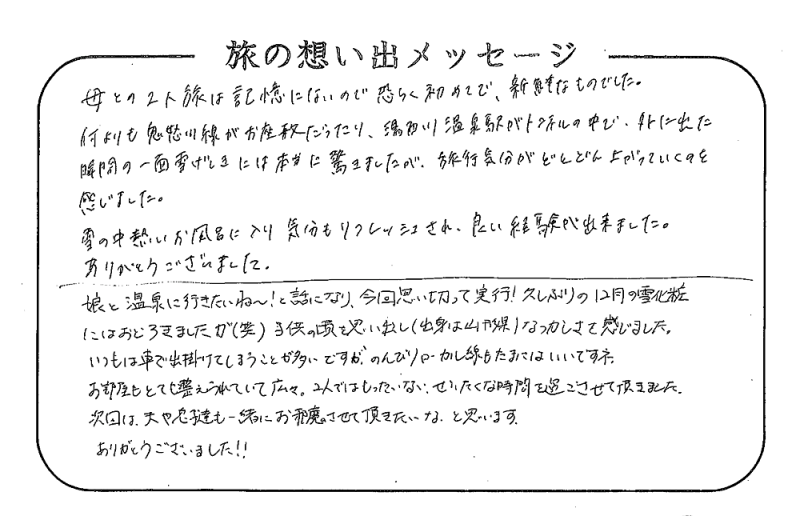 旅の想い出メッセージ
母との2人旅は記憶にないので恐らく初めてで、新鮮なものでした。
何よりも鬼怒川線がお座敷だったり、湯西川温泉駅がトンネルの中で、外に出た
瞬間の一面雪げしきには本当に驚きましたが、旅行気分がどんどん上がっていくのを
感じました。
雪の中熱いお風呂に入り気分もリフレッシュされ、良い経験が出来ました。
ありがとうございました。
娘と温泉に行きたいね〜!と話になり、今回思い切って実行!久しぶりの12月の雪化粧
にはおどろきましたが(笑)子供の頃を思い出し(出身は山形県)なつかしさを感じました。
いつもは車で出掛けてしまうことが多いですが、のんびりローカル線もたまにはいいですネ。
お部屋もとても整えられていて広々。2人ではもったいない、ぜいたくな時間を過ごさせて頂きました。
次回は、夫や息子達も一緒にお邪魔させて頂きたいな、と思います。
ありがとうございました!!